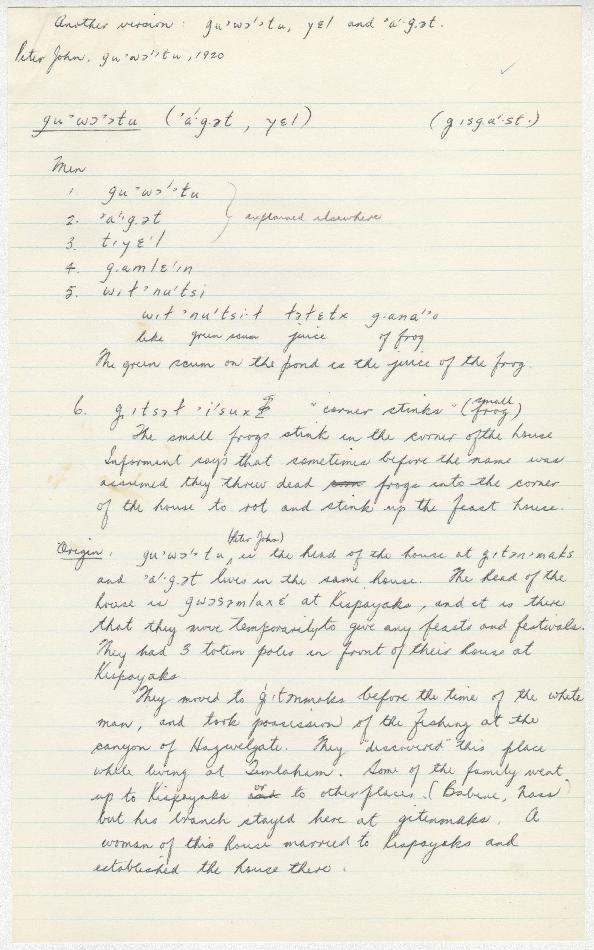 Another version: gu'wɔ''tu, yɛl and 'a'·g.ət.
Peter John. gu'wɔ''tu, 1920
gu'wɔ''ɔtu ('a'g.ət, yɛl) (gisga'·st.)
Men
1. gu'wɔ''ɔtu
2. 'a'·g.ət } explained elsewhere
3. t.yɛ'l
4. g.amlɛ'in
5. wit'nu'tsi
wit'nu'tsi·t tɔtɛtx g.ana''o
like green scum juice of frog
The green scum on the pond is the juice of the frog.
6. g.itsəł 'i'sux "corner stinks" (small frog)
The small frogs stink in the corner of the house
Informant says that sometimes before the name was
assumed they threw dead frogs into the corner
of the house to rot and stink up the feast house.
Origin: gu'wɔ'·tu (Peter John) is the head of the house at g.itən·maks
and 'a'·g.ət lives in the same house. The head of the
house is gwɔsəmlaxɛ' at Kispayaks, and it is there
that they move temporarily to give any feasts and festivals.
They had 3 totem poles in front of their house at
Kispayaks.
They moved to gitnmaks before the time of the white
man, and took possession of the fishing at the
canyon of Hagwelgate. They "discovered" this place
while living at Temlaham. Some of the family went
up to Kispayaks or to other places. (Babine, Nass)
but his branch stayed here at gitenmaks. A
woman of this house married to Kispayaks and
established the house there.